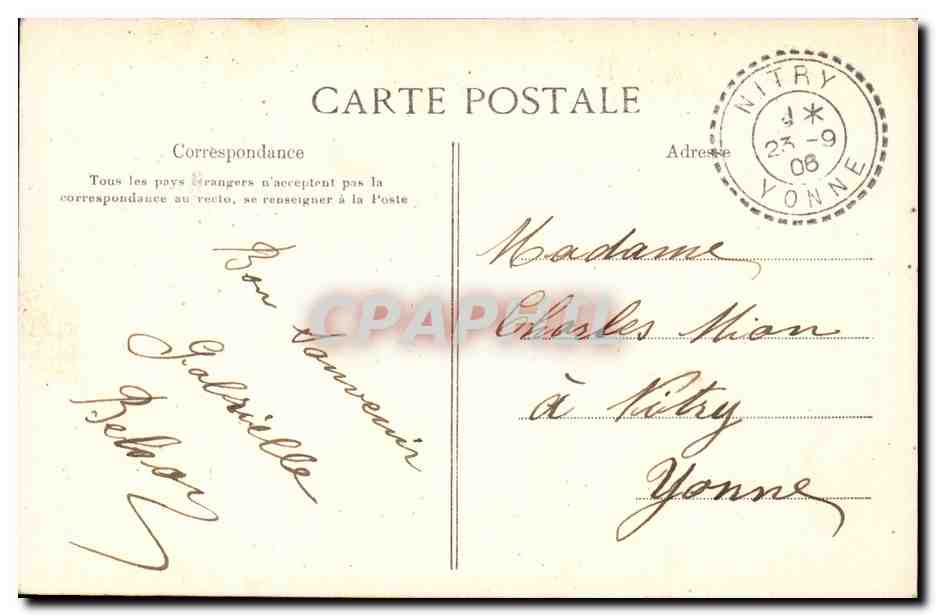 CARTE POSTALE
Correspondance
Tous les pays étrangers n'acceptent pas la
correspondance au recto, se renseigner à la Poste
Bon souvenir
Gabrielle
Adresse
NITRY
23 -9
06
YONNE
Madame
Charles Mion
à Nitry
Yonne
CPAPHIL